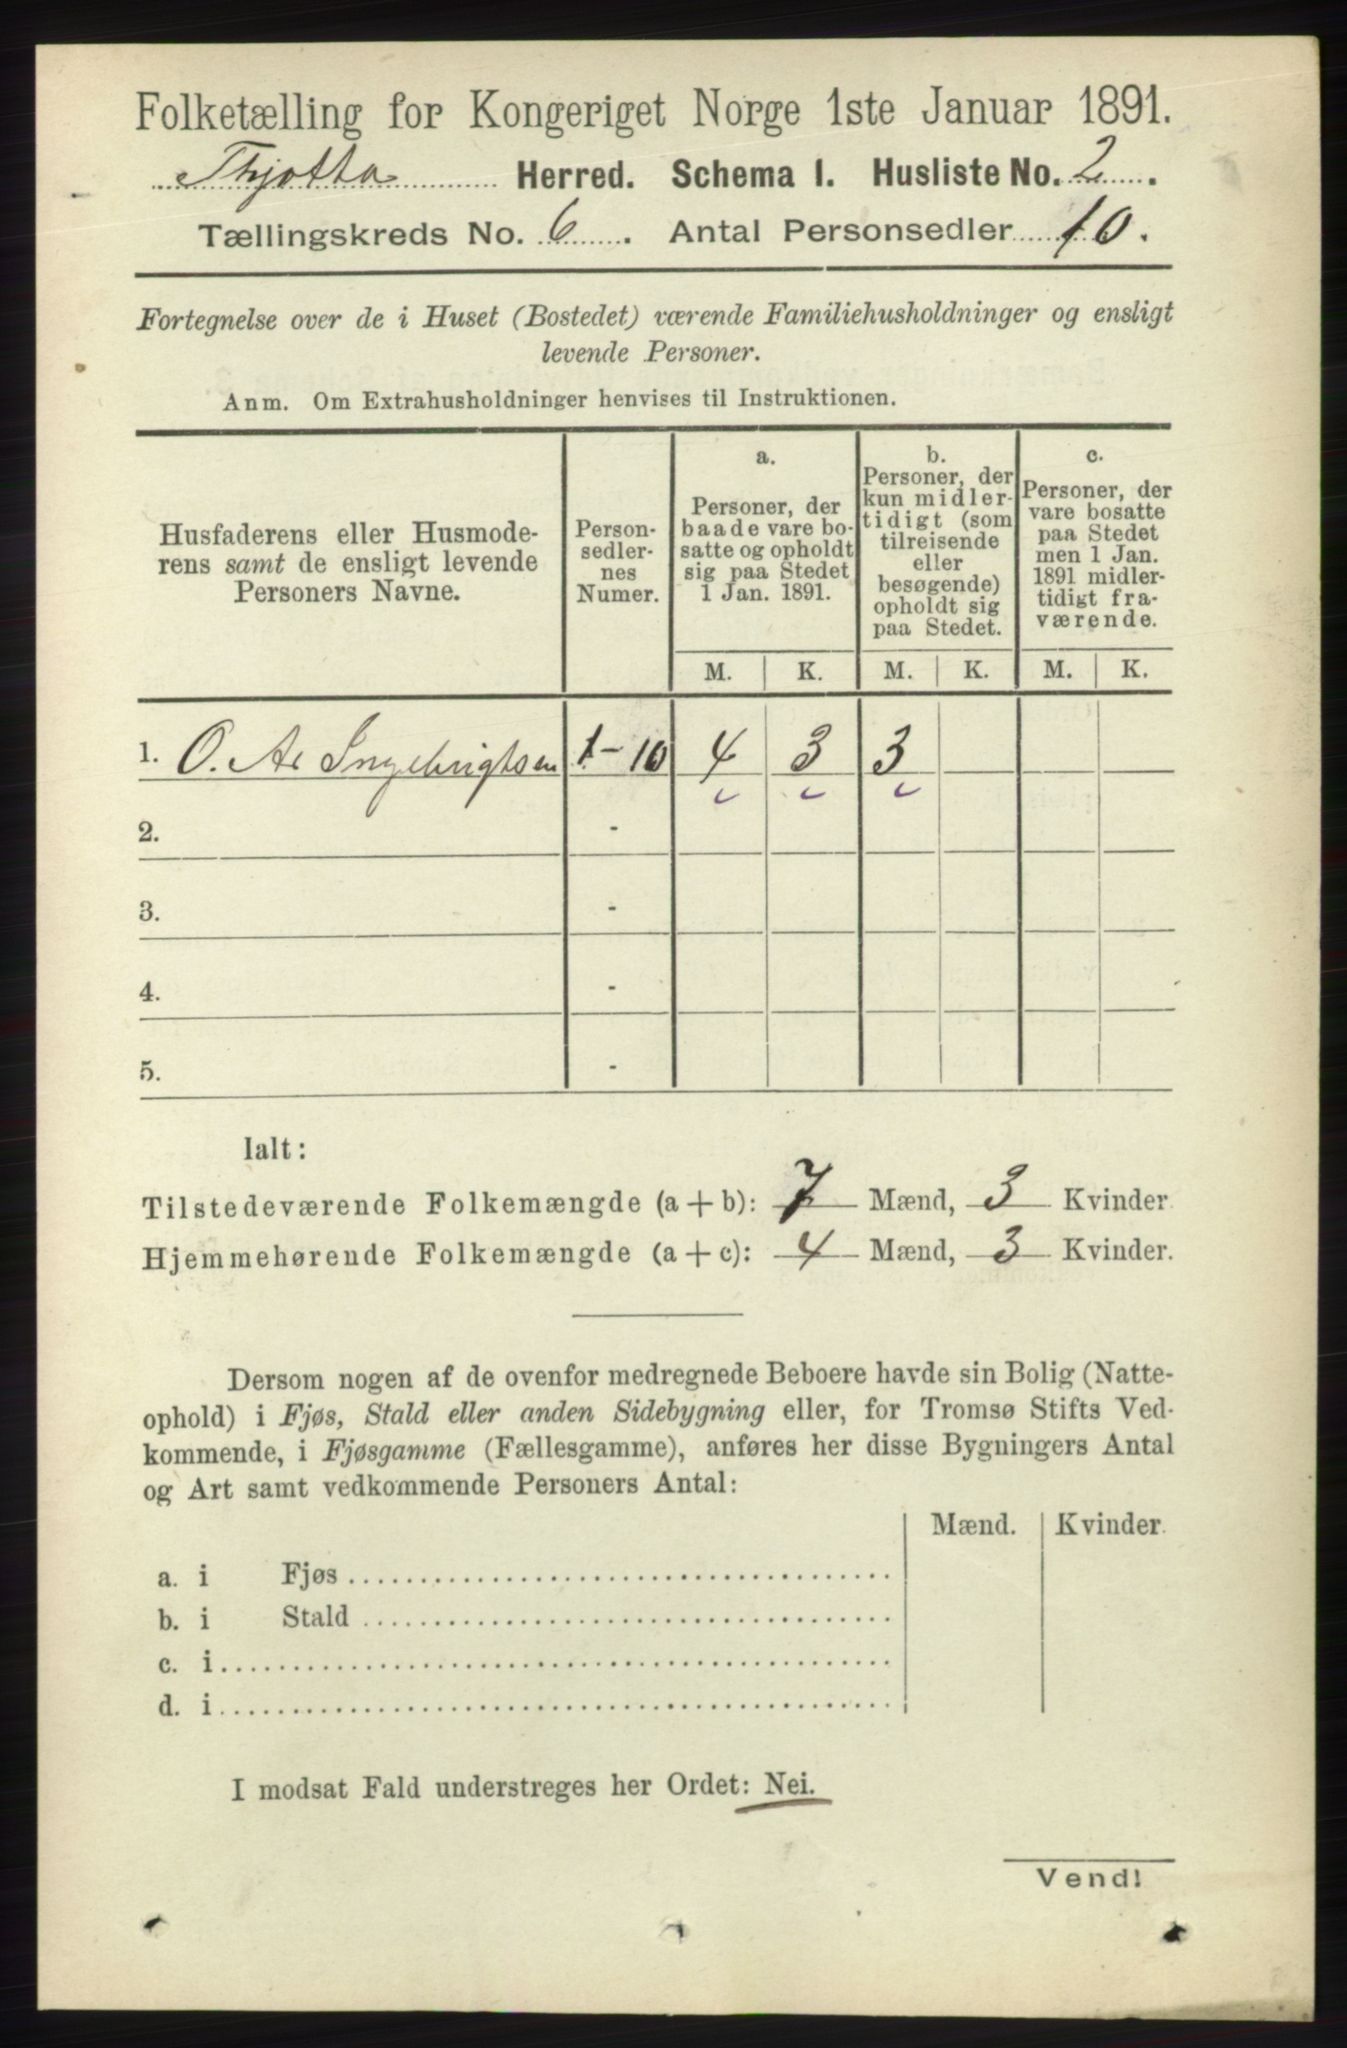 Folketælling for Kongeriget Norge 1ste Januar 1891.
Thjotta Herred. Schema 1. Husliste No. 2.
Tællingskreds No. 6. Antal Personsedler 10.
Fortegnelse over de i Huset (Bostedet) værende Familiehusholdninger og ensligt
levende Personer.
Anm. Om Extrahusholdninger henvises til Instruktionen.
Husfaderens eller Husmode-
rens samt de ensligt levende
Personers Navne.
Person-
sedler-
nes
Numer.
a.
Personer, der
baade vare bo-
satte og opholdt
sig paa Stedet
1 Jan. 1891.
b.
Personer, der
kun midler-
tidigt (som
tilreisende
eller
besøgende)
opholdt sig
paa Stedet.
c.
Personer, der
vare bosatte
paa Stedet
men 1 Jan.
1891 midler-
tidigt fra-
værende.
M. K. M. K. M. K.
1. O. A. Ingebrigtsen 1-10 4 3 3
2. -
3. -
4. -
5. -
Ialt:
Tilstedeværende Folkemængde (a+b): 7 Mænd, 3 Kvinder.
Hjemmehørende Folkemængde (a+c): 4 Mænd, 3 Kvinder.
Dersom nogen af de ovenfor medregnede Beboere havde sin Bolig (Natte-
ophold) i Fjøs, Stald eller anden Sidebygning eller, for Tromsø Stifts Ved-
kommende, i Fjøsgamme (Fællesgamme), anføres her disse Bygningers Antal
og Art samt vedkommende Personers Antal:
Mænd. Kvinder.
a. i Fjøs
b. i Stald
c. i
d. i
I modsat Fald understreges her Ordet: Nei.
Vend!